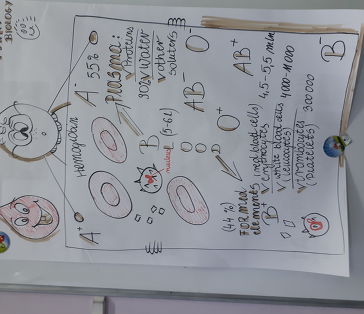 BIOLOGY
A⁻ 55%
Plasma:
Proteins
90% water
other
AB⁻ O⁻
Hemoglobin
B
nucleus
(5-6l)
O⁺
AB⁺
A⁺
(44%)
FORMED
elements (red blood cells)
erythrocytes 4,5-5,5 mln
B⁺
white blood cells
(leucocytes) 4000-11000
(Platelets) 300 000
B⁻